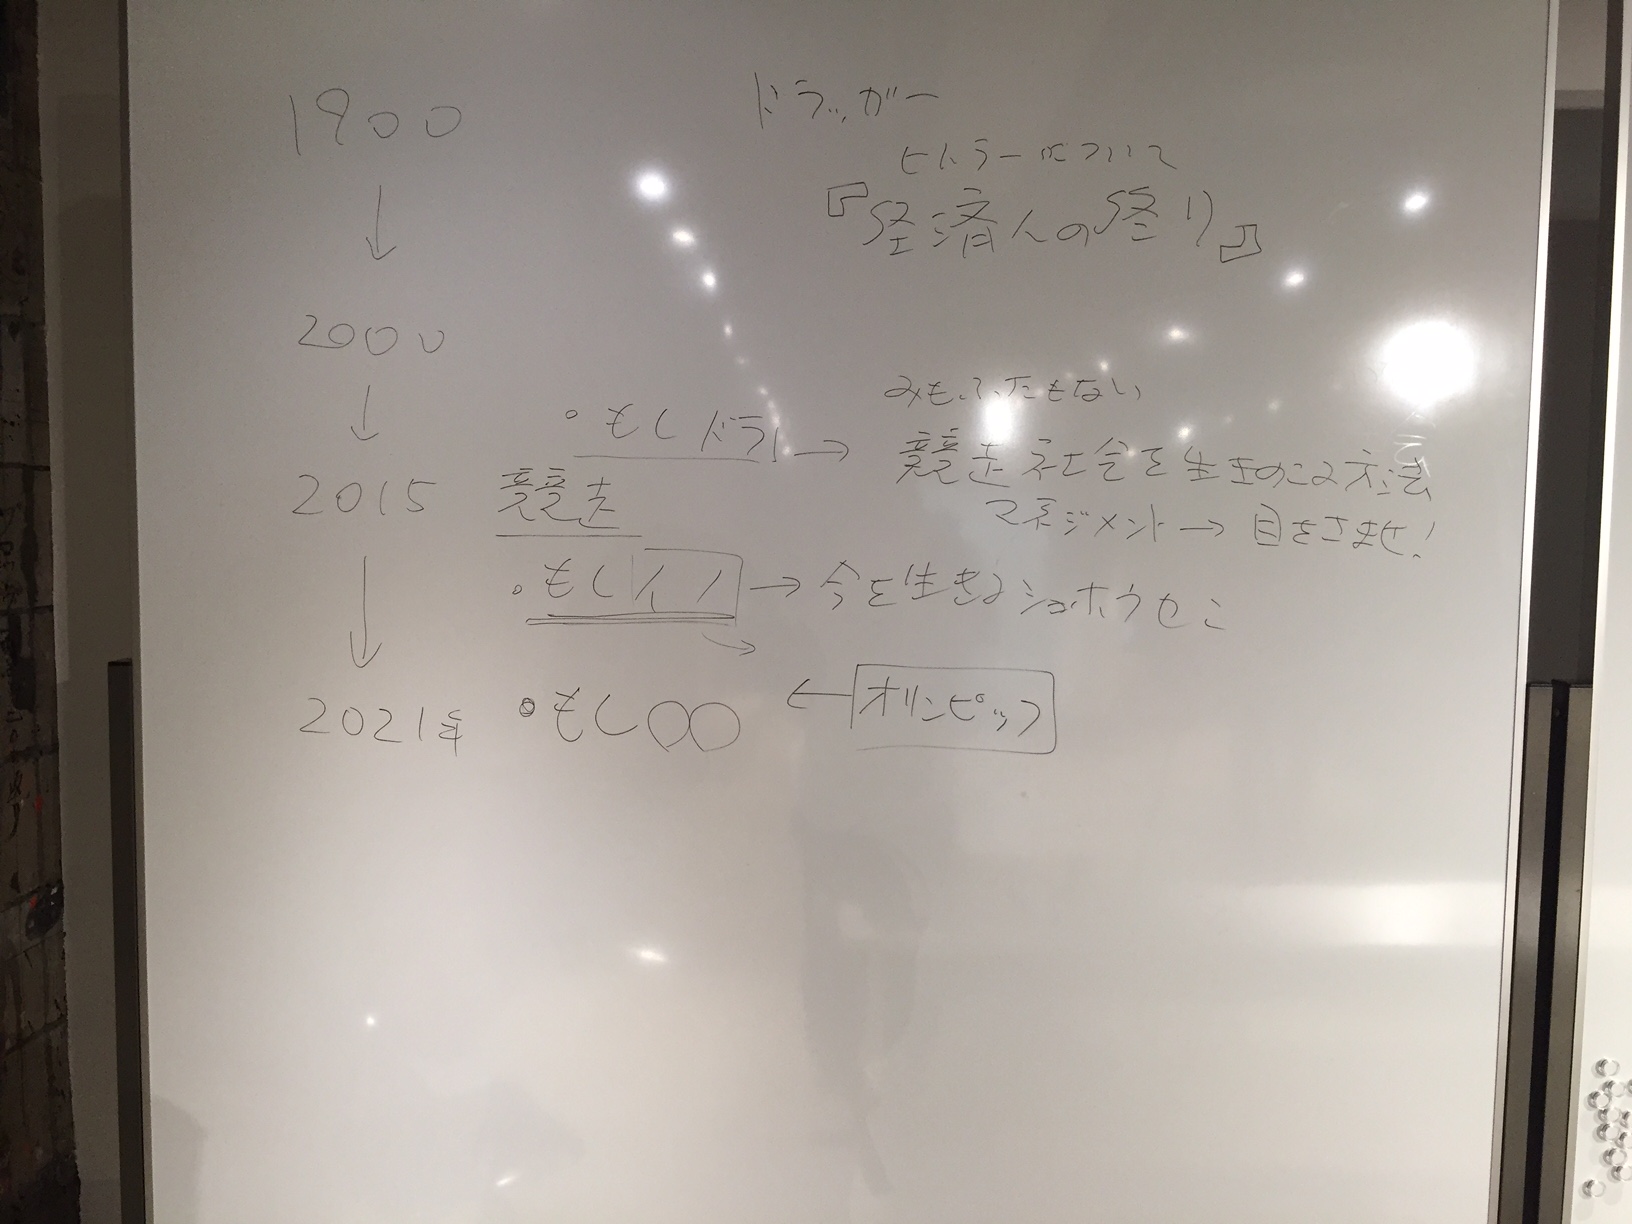 1900
ドラッガー
ヒトラーについて
『経済人の終り』
2000
みもふたもない
・もしドラ → 競走社会を生きのこる方法
2015 競走
マネジメント → 目をさませ!
・もしイノ → 今を生きる
2021年 ・もし○○ ← オリンピック